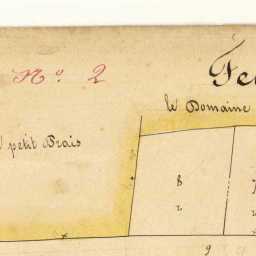 N.º 2
Fe
le Domaine
petit Brais
8
2
7
2
9